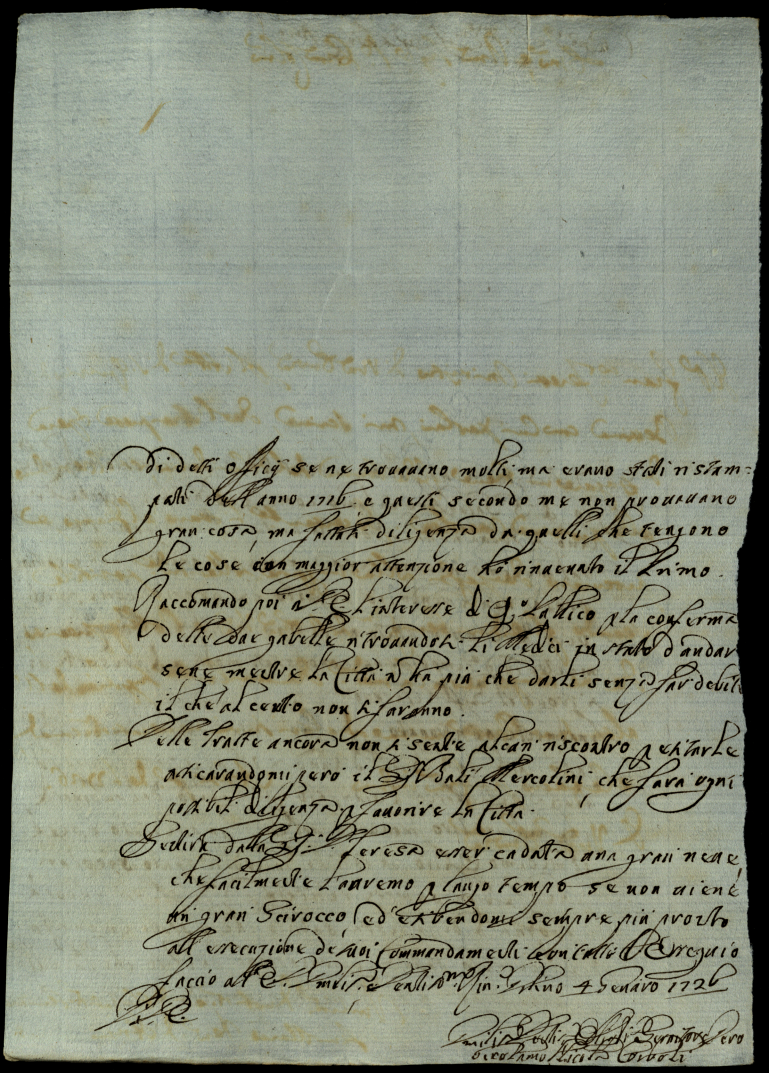 Di detti officij se ne trovavano molti, ma erano stati ristam=
pati dell'anno 1716, e questi secondo me non provavano
gran cosa, ma fattat diligenza da quelli che tengono
le cose con maggior attenzione hò rinvenuto il Primo.
Raccomando poi a l'interesse di Publico p la conferma
delle due gabelle ritrovandosi li Medici in stato d'andar
sene mentre la Città n̄ ha più che darli senza far debiti
il che al certo non si faranno.
Delle Tratte ancora non si sente alcun riscontro p
assicurandomi però il Sig Balì Mercolini, che farà ogni
possibil diligenza p favorire la Città.
Sentirà dalla Sig Teresa esser caduta una gran neve
che facilmente l'havremo p lungo tempo se non viene
un gran Scirocco, ed esibendomi sempre più pronto
all'esecuzione de suoi Commandamenti con tutto l'ossequio
faccio alle 4 Genaro 1726
Devotis Oblig Servitore Vero
Girolamo Corboli